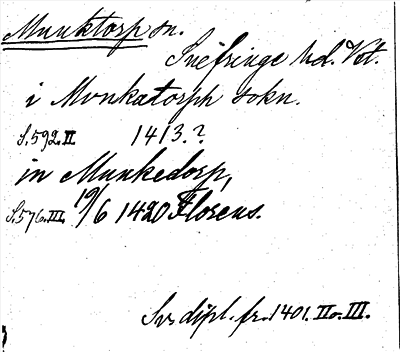 Munktorp sn.
Snefringe hd. Vst.
i Monkatorph sokn.
S.592.II 1413.?
in Munkedorp,
S.576.III. 19/6 1420 Florens.
Sv. dipl. fr. 1401. II o. III.